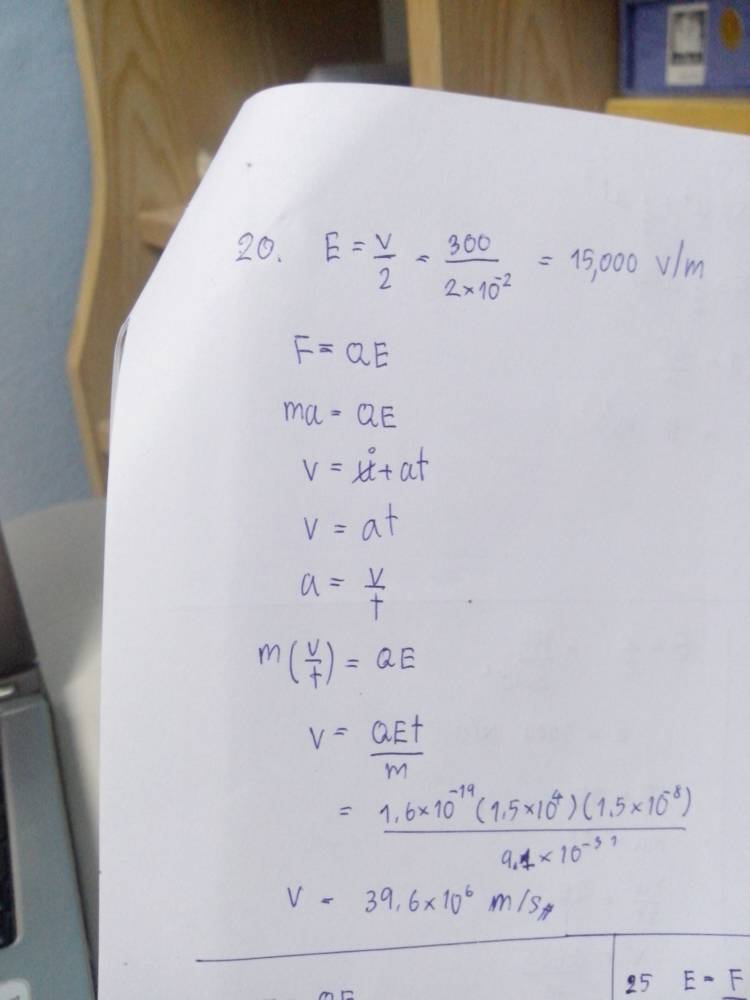 20. E = V/2 = 300/2×10⁻² = 15,000 V/m
F = QE
ma = QE
v = u⁰ + at
v = at
a = v/t
m(v/t) = QE
v = QEt/m
= 1,6×10⁻¹⁹ (1,5×10⁴)(1,5×10⁻⁸)/9,1×10⁻³¹
v = 39,6×10⁶ m/s#
QE
25 E = F